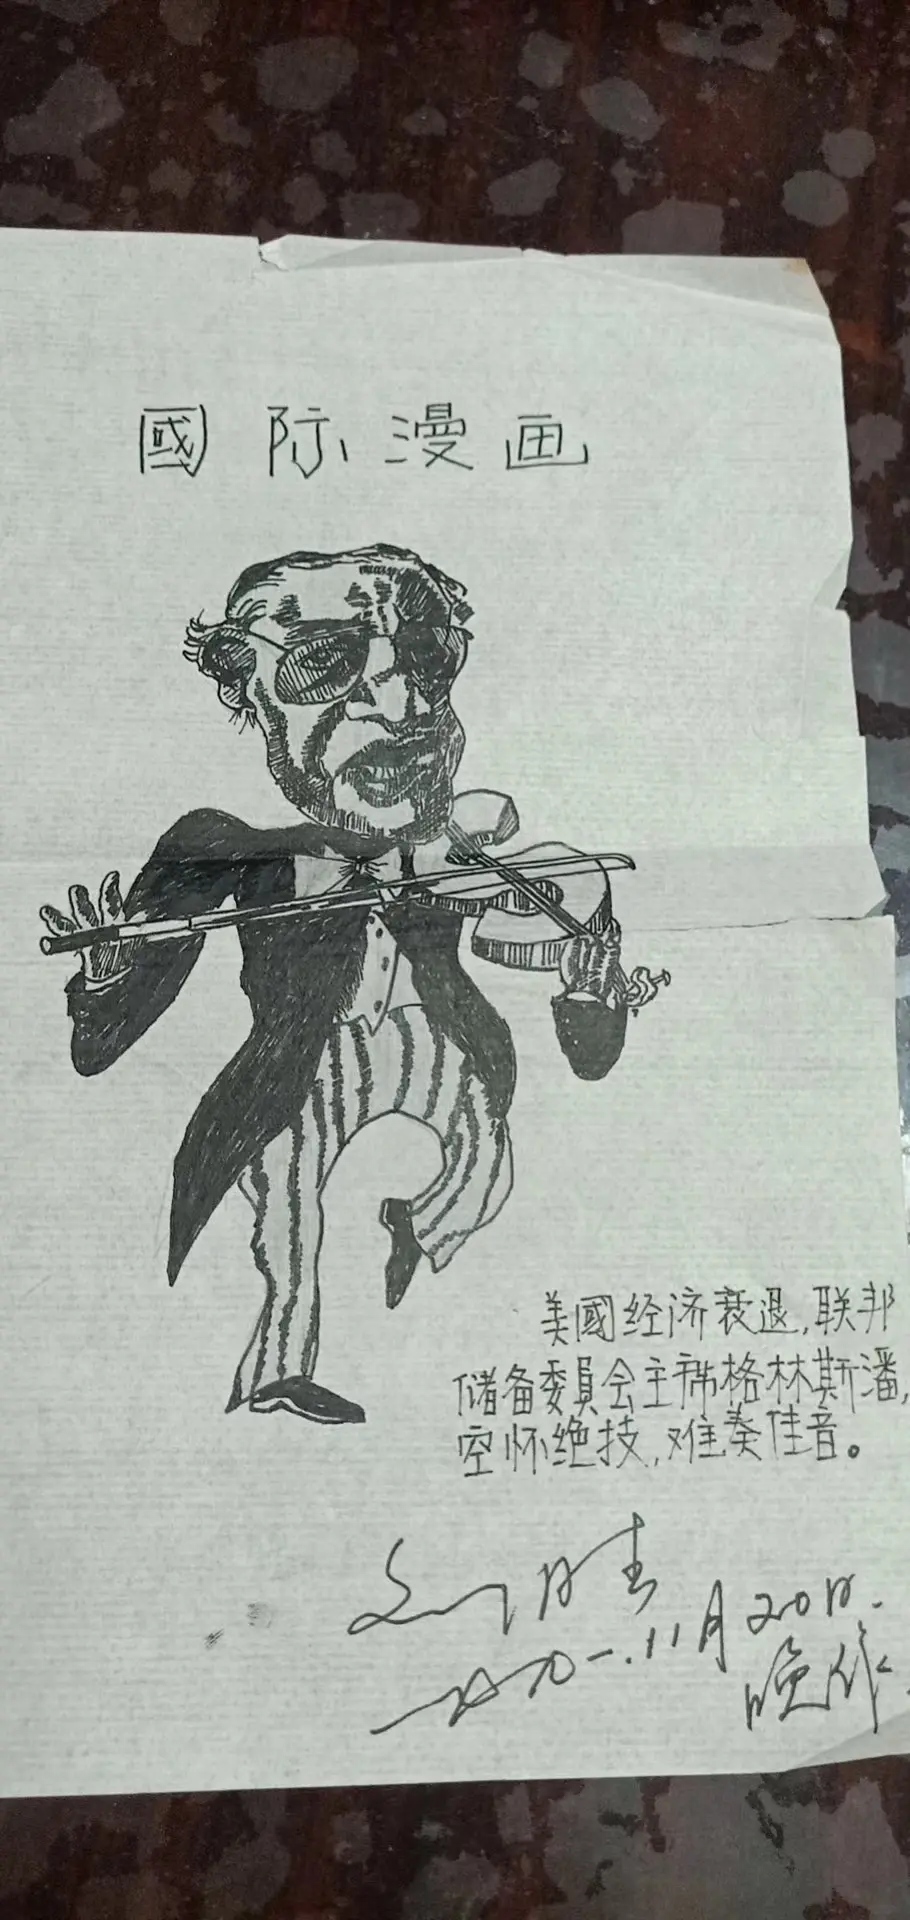 國际漫画
美國经济衰退,联邦
储备委員会主席格林斯潘,
空怀绝技,难奏佳音。
刘胜
11月20日.
晚作